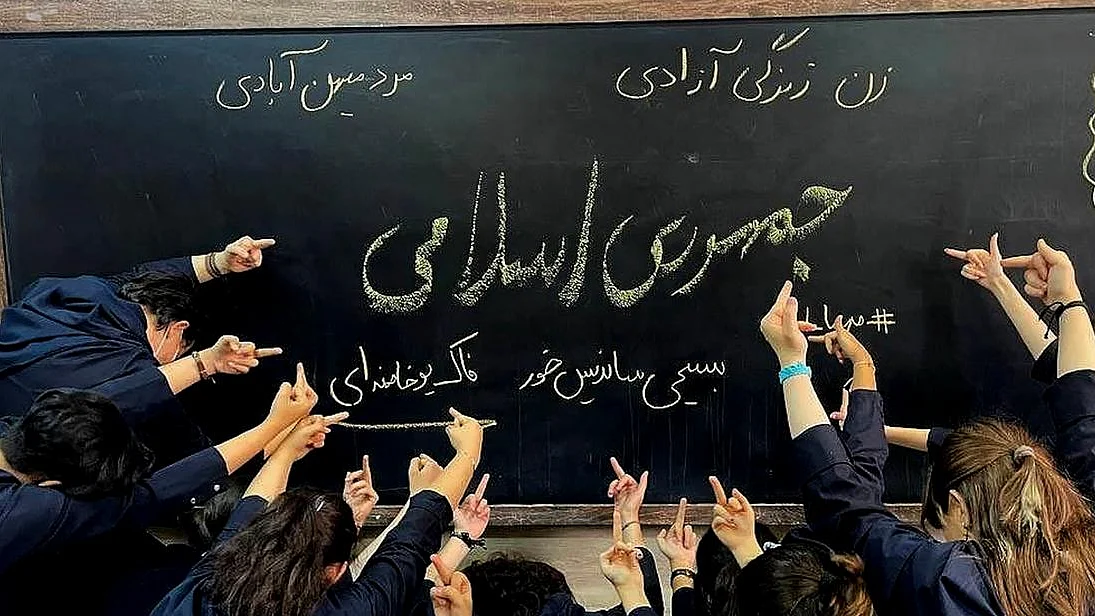 زن زندگی آزادی
مرد میهن آبادی
جمهوری اسلامی
#مهسا
بسیجی ساندیس خور
فاک یو خامنه ای